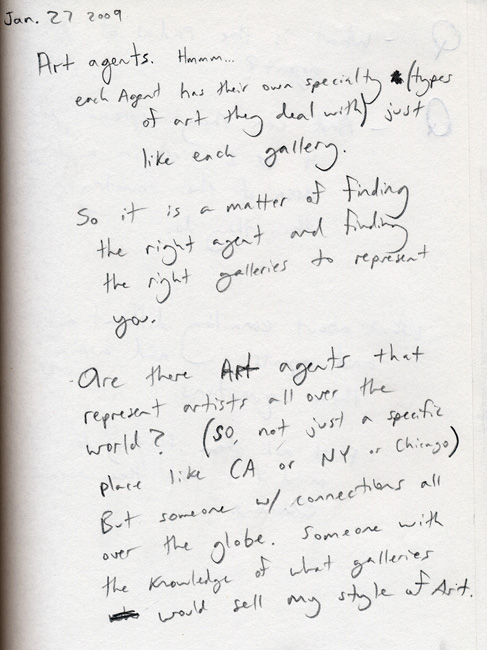 Jan. 27 2009
Art agents. Hmmm...
each Agent has their own specialty (types
of art they deal with) just
like each gallery.
So it is a matter of finding
the right agent and finding
the right galleries to represent
you.
Are there Art agents that
represent artists all over the
world? (so, not just a specific
place like CA or NY or Chicago)
But someone w/ connections all
over the globe. Someone with
the knowledge of what galleries
would sell my style of Art.